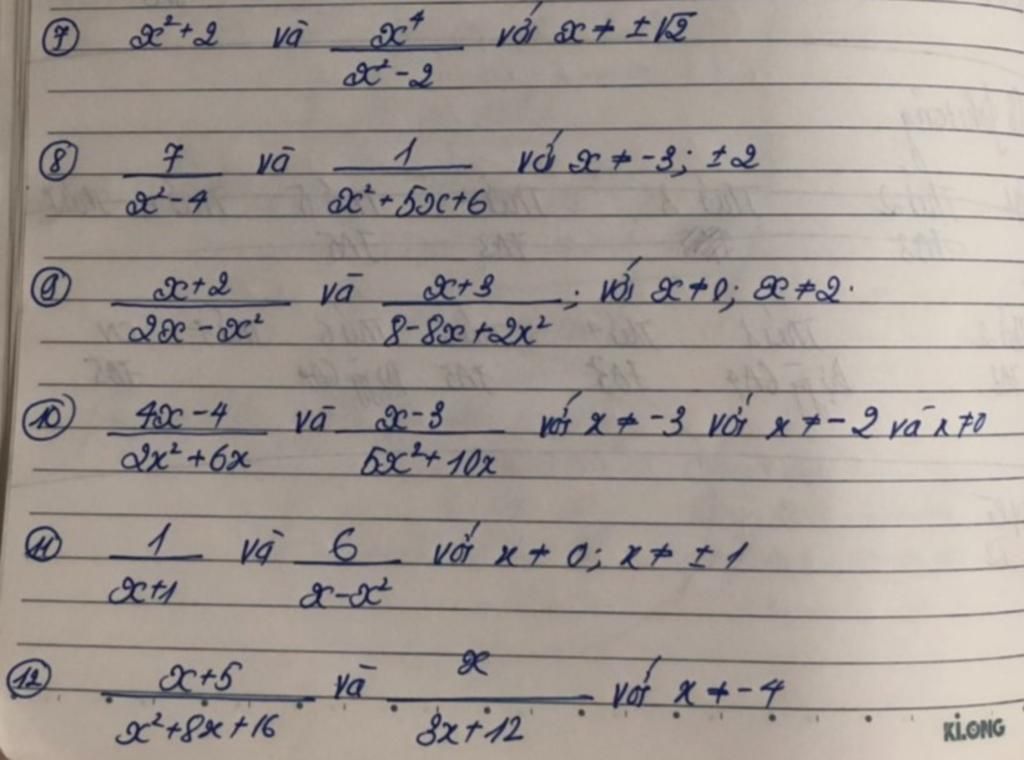 ⑦ x² + 2 và x⁴/(x² - 2) với x ≠ ±√2
⑧ 7/(x² - 4) và 1/(x² + 5x + 6) với x ≠ -3; ±2
⑨ (x + 2)/(2x - x²) và (x + 3)/(8 - 8x + 2x²); với x ≠ 0; x ≠ 2.
⑩ (4x - 4)/(2x² + 6x) và (x - 3)/(5x² + 10x) với x ≠ -3 với x ≠ -2 và x ≠ 0
⑪ 1/(x + 1) và 6/(x - x²) với x ≠ 0; x ≠ ±1
⑫ (x + 5)/(x² + 8x + 16) và x/(3x + 12) với x ≠ -4
KLONG